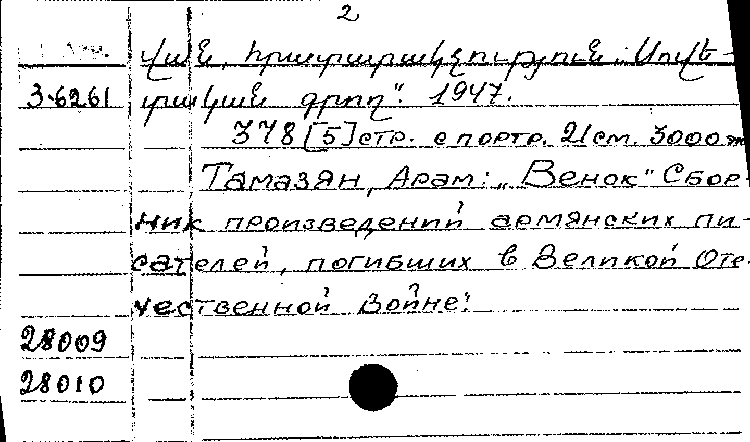 2
վան, Հրատարակչություն „Սովե-
3-6261 տական գրող". 1947.
378 [5] стр. с портр. 21 см. 3000 э
Тамазян, Арам: „Венок" Сбор
ник произведений армянских пи-
сателей, погибших в Великой Оте-
чественной Войне:
28009
28010